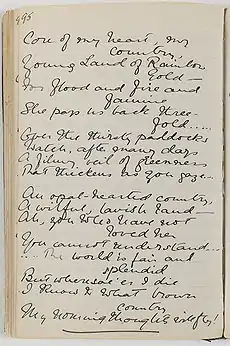 295
Core of my heart, my
country
Young Land of Rainbow
Gold—
For flood and fire and
famine
She pays us back three-
fold.....
Over the thirsty paddocks
Watch, after many days
A filmy veil of greenness
That thickens as you gaze...
An opal-hearted country,
A wilful, lavish land—
Ah, you who have not
loved her
You cannot understand....
.... The world is fair and
splendid
But whensoe'er I die
I know to what brown
country
My homing thoughts will fly!